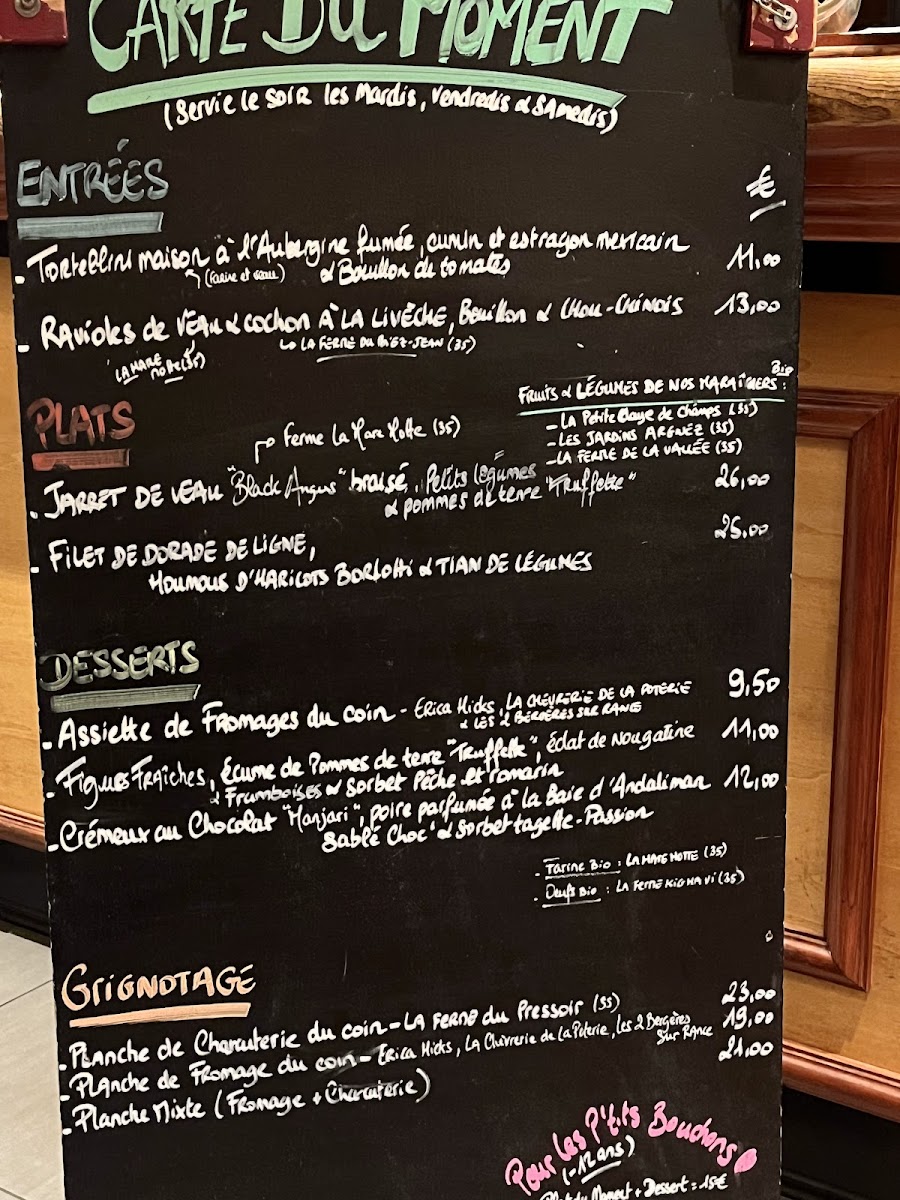 CARTE DU MOMENT
(Servie le soir les Mardis, Vendredis & Samedis)
ENTRÉES
€
- Tortellini maison à l'Aubergine fumée, cumin et estragon mexicain 11,00
(farine et eau) & Bouillon de tomates
- Ravioles de veau & cochon à la livèche, Bouillon & Chou-Chinois 13,00
LA MARE NOTTE (35)
LA FERME DU MEZ-JEAN (35)
PLATS
Fruits & LÉGUMES DE NOS MARAÎCHERS Bio :
- La Petite Claye de Champs (35)
- LES JARDINS ARGNEZ (35)
- LA FERME DE LA VALLÉE (35)
Ferme La Mare Notte (35)
- JARRET DE VEAU "Black Angus" braisé, Petits légumes 26,00
& pommes de terre "Truffette"
- FILET DE DORADE DE LIGNE, 25,00
HOUMOUS D'HARICOTS Borlotti & TIAN DE LÉGUMES
DESSERTS
- Assiette de Fromages du coin - Erica Hicks, LA CHÈVRERIE DE LA POTERIE 9,50
& LES 2 BERGÈRES SUR RANCE
- Figues Fraîches, Écume de Pommes de terre "Truffette", éclat de Nougatine 11,00
& Framboises & Sorbet Pêche et romarin
- Crémeux au Chocolat "Manjari", poire parfumée à la Baie d'Andaliman 12,00
Sablé Choc' & Sorbet tagette-Passion
- Farine Bio : LA MARE NOTTE (35)
- Oeufs Bio : LA FERME (35)
GRIGNOTAGE
- Planche de Charcuterie du coin - LA FERME du Pressoir (35) 23,00
- Planche de Fromage du coin - Erica Hicks, La Chèvrerie de la Poterie, les 2 Bergères 19,00
Sur Rance
- Planche Mixte (Fromage + Charcuterie) 21,00
Pour Les P'tits Bouchons
(-12 ans)
Plat du Moment + Dessert = 15€